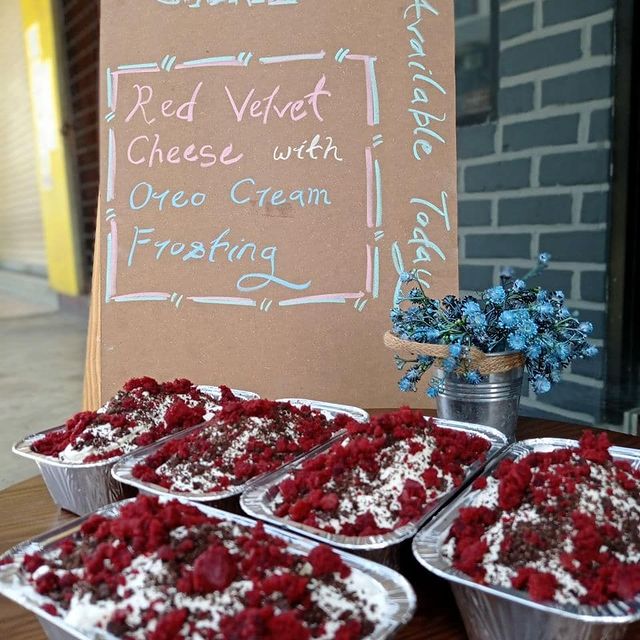 Red Velvet
Cheese with
Oreo Cream
Frosting
Available Today